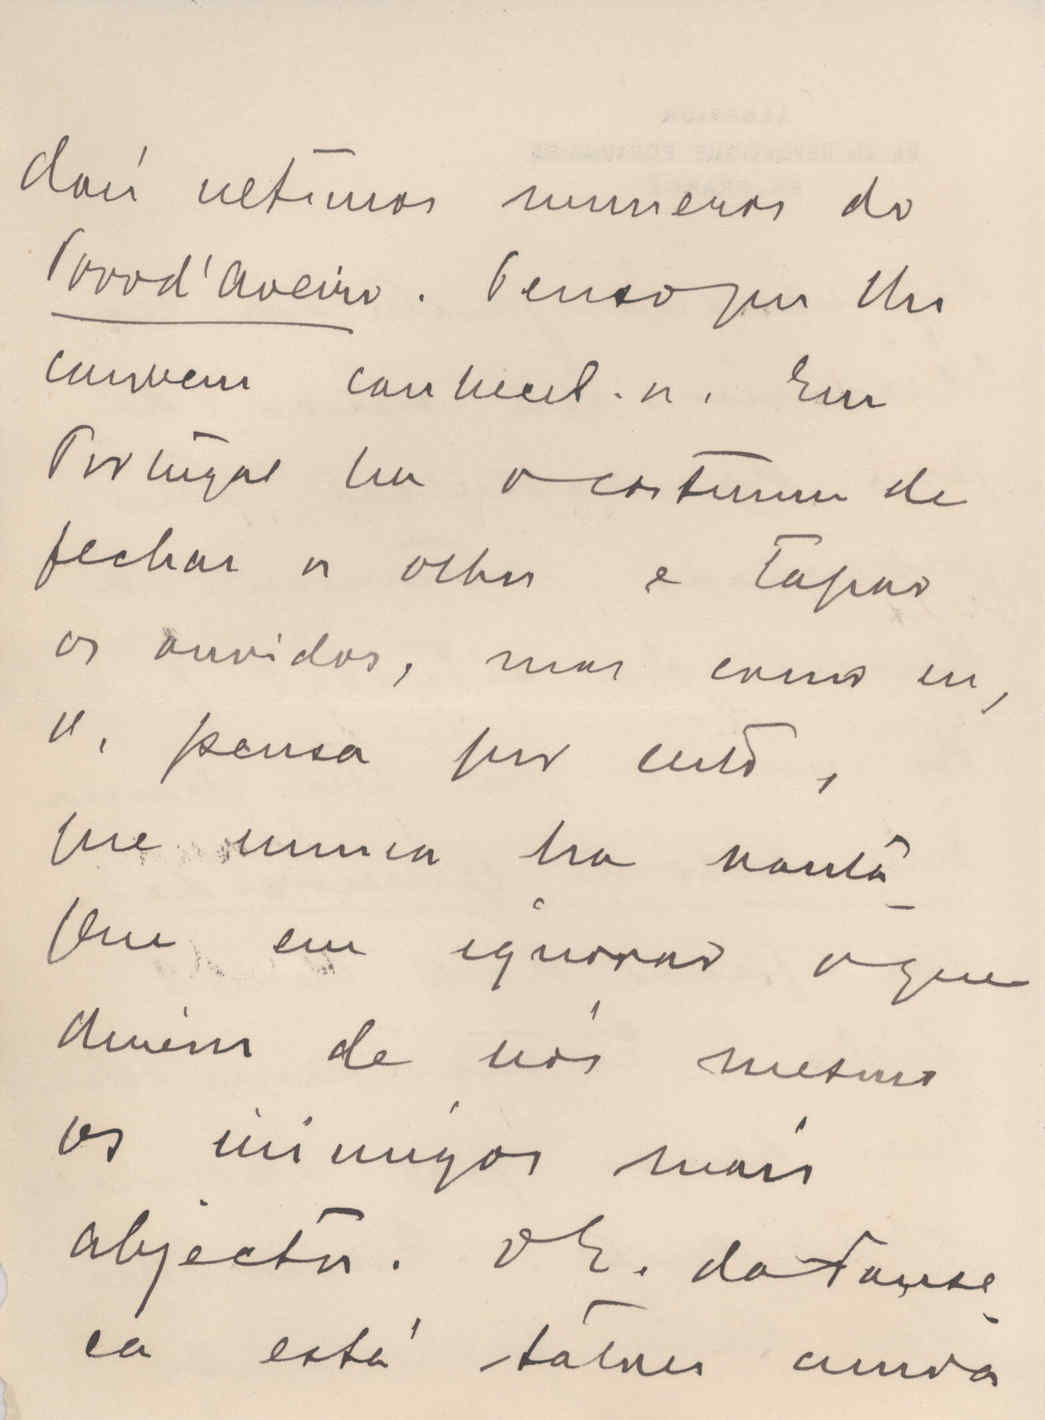 dois ultimos numeros do
Povo d'Aveiro. Penso que lhe
convem conhecel-os. Em
Portugal ha o costume de
fechar os olhos e tapar
os ouvidos, mas como eu,
V. pensa por certo,
que nunca ha vanta-
gem em ignorar o que
dizem de nós mesmo
os inimigos mais
abjectos. O E. da Fonse-
ca está talvez ainda